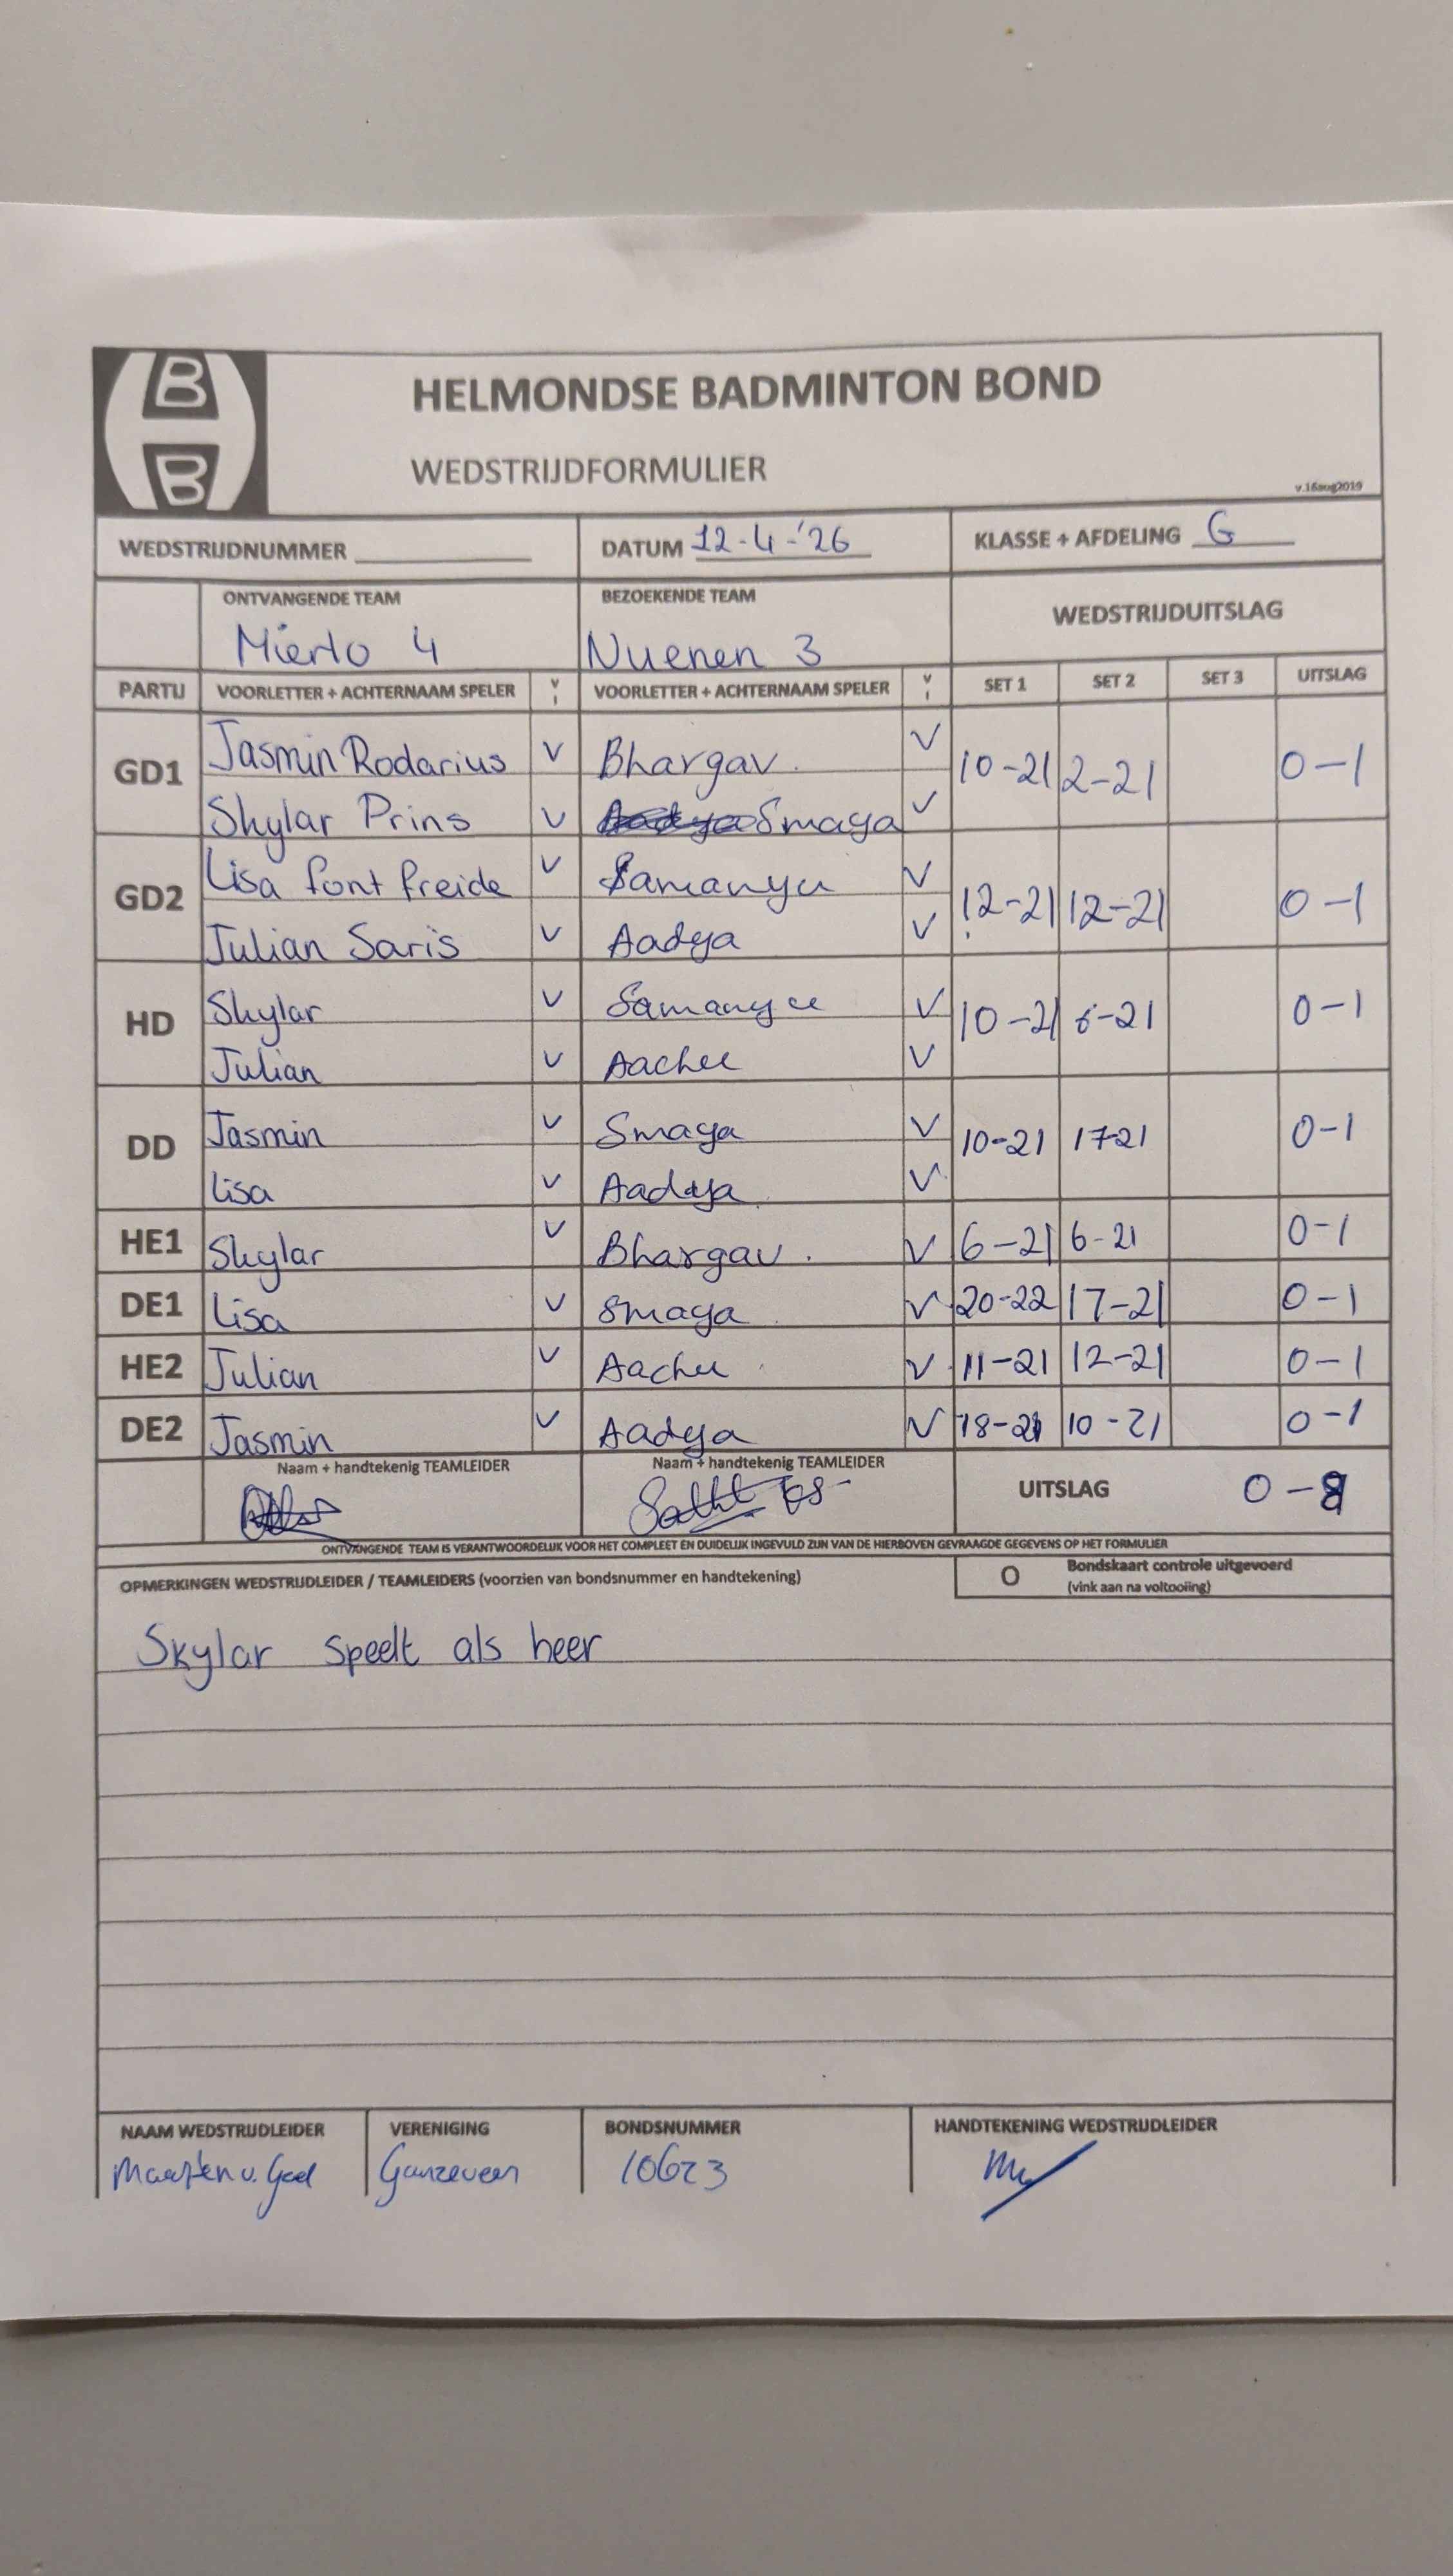 B
B
HELMONDSE BADMINTON BOND
WEDSTRIJDFORMULIER
v.16aug2019
WEDSTRIJDNUMMER
DATUM 12-4-'26
KLASSE + AFDELING G
ONTVANGENDE TEAM
BEZOEKENDE TEAM
WEDSTRIJDUITSLAG
Mierlo 4
Nuenen 3
PARTIJ VOORLETTER + ACHTERNAAM SPELER V I VOORLETTER + ACHTERNAAM SPELER V I SET 1 SET 2 SET 3 UITSLAG
GD1 Jasmin Rodarius V Bhargav. V 10-21 2-21 0-1
Skylar Prins V Smaya V
GD2 Lisa font freide V Samanyu V 12-21 12-21 0-1
Julian Saris V Aadya V
HD Skylar V Samanyu V 10-21 6-21 0-1
Julian V V
DD Jasmin V Smaya V 10-21 17-21 0-1
Lisa V Aadya V
HE1 Skylar V Bhargav. V 6-21 6-21 0-1
DE1 Lisa V Smaya V 20-22 17-21 0-1
HE2 Julian V V 11-21 12-21 0-1
DE2 Jasmin V Aadya V 18-21 10-21 0-1
Naam + handtekenig TEAMLEIDER
Naam + handtekenig TEAMLEIDER
UITSLAG 0-8
ONTVANGENDE TEAM IS VERANTWOORDELIJK VOOR HET COMPLEET EN DUIDELIJK INGEVULD ZIJN VAN DE HIERBOVEN GEVRAAGDE GEGEVENS OP HET FORMULIER
OPMERKINGEN WEDSTRIJDLEIDER / TEAMLEIDERS (voorzien van bondsnummer en handtekening)
O Bondskaart controle uitgevoerd
(vink aan na voltooiing)
Skylar speelt als heer
NAAM WEDSTRIJDLEIDER VERENIGING BONDSNUMMER HANDTEKENING WEDSTRIJDLEIDER
Maarten v. Gool Ganzeveer 10673